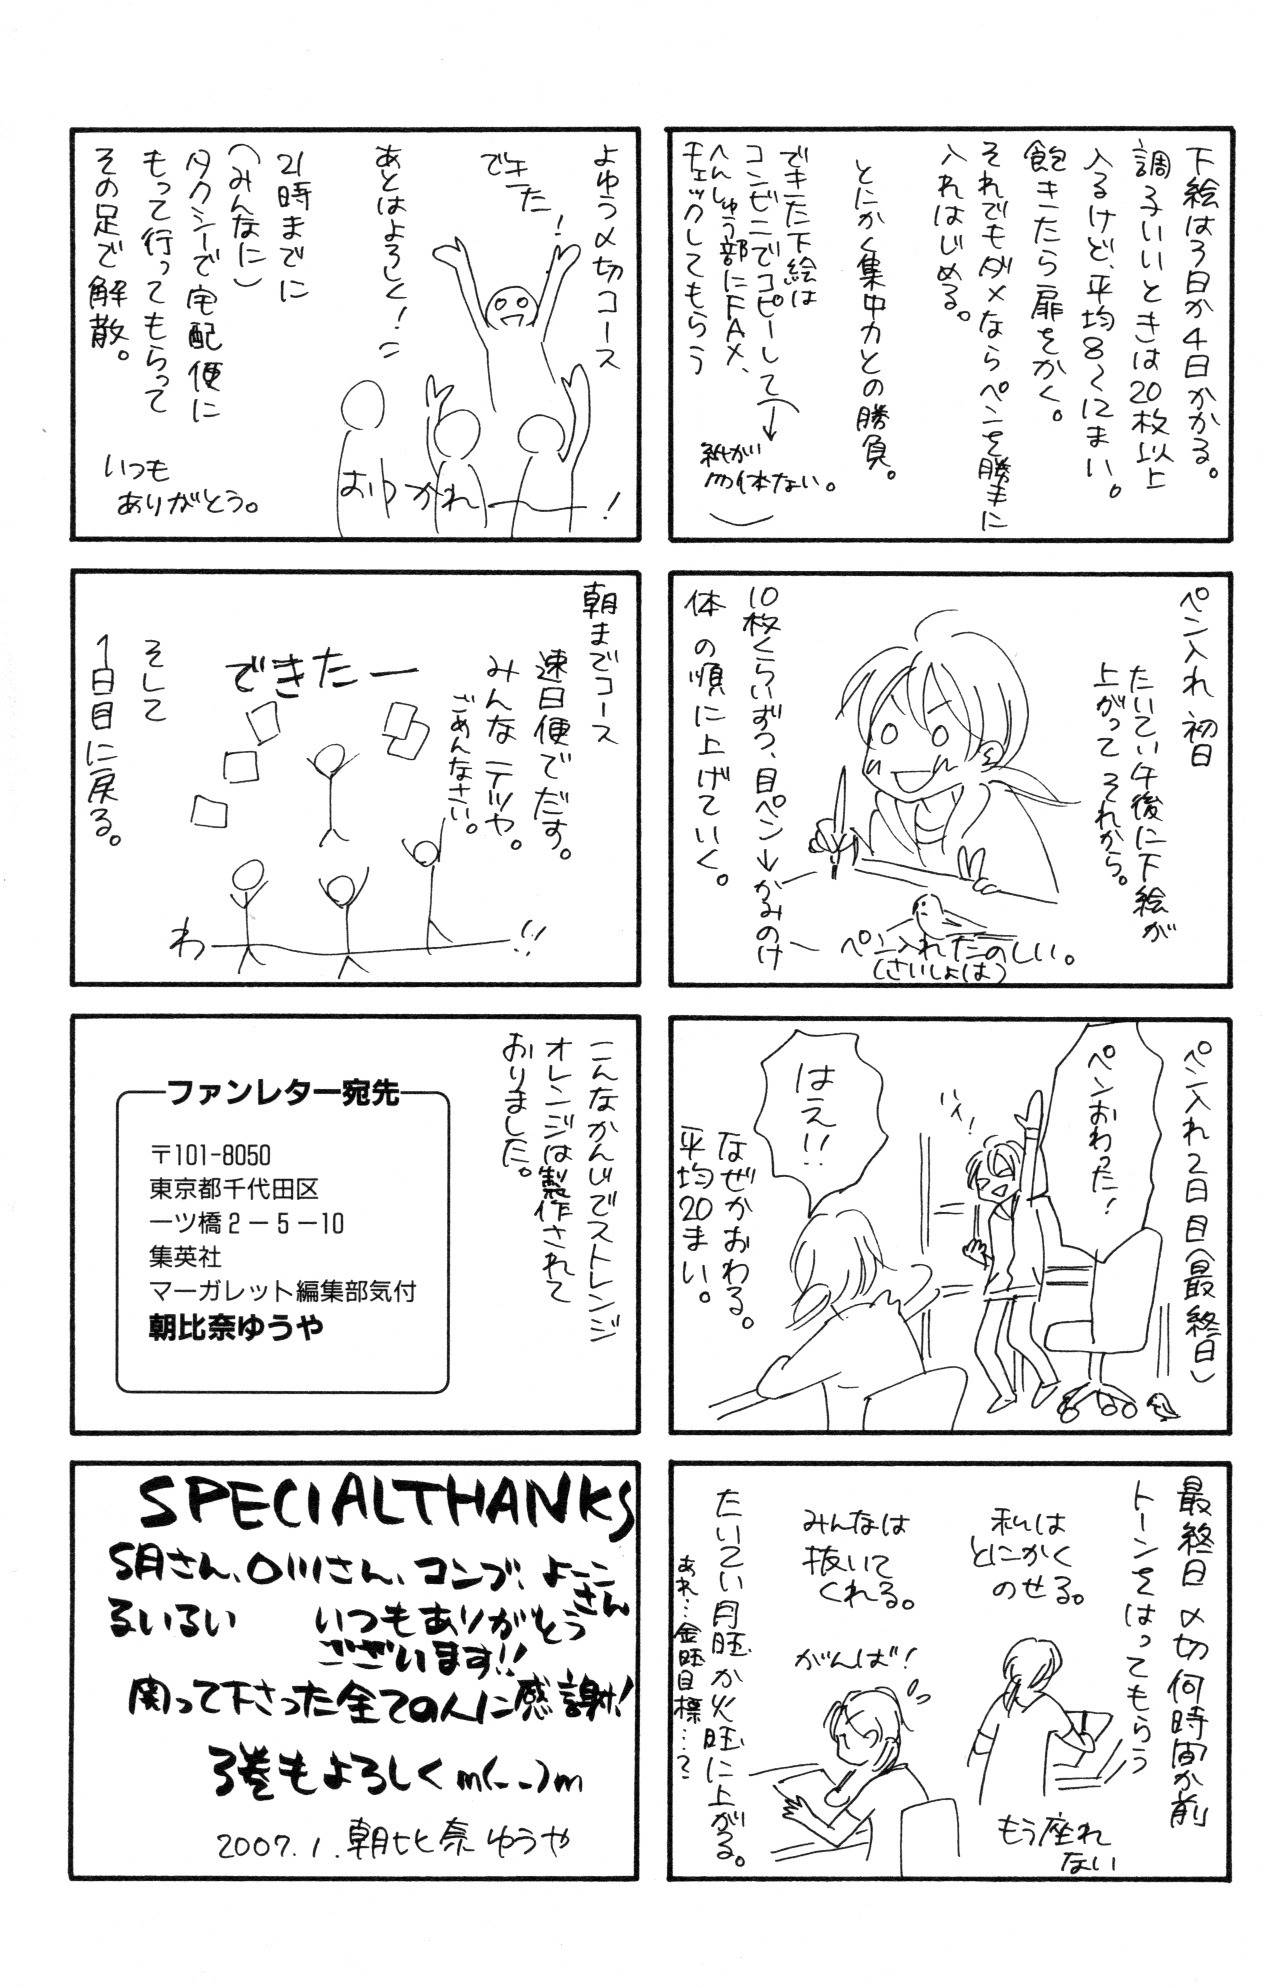 下絵は3日か4日かかる。
調子いいときは20枚以上
入るけど、平均8〜12まい。
飽きたら扉をかく。
それでもダメならペンを勝手に
入れはじめる。
とにかく集中力との勝負。
できた下絵は
コンビニでコピーして
へんしゅう部にFAX、
チェックしてもらう
紙が
勿体ない。
ペン入れ 初日
たいてい午後に下絵が
上がって それから。
10枚くらいずつ、目ペン→かみのけ
体 の順に上げていく。
ペン入れたのしい。
(さいしょは)
ペン入れ2日目(最終日)
ペンおわった!
ハイ!
はえ!!
なぜかおわる。
平均20まい。
最終日 〆切何時間か前
トーンをはってもらう
私は
とにかく
のせる。
みんなは
抜いて
くれる。
もう座れ
ない
がんば!
たいてい月旺か火旺に上がる。
あれ…金旺目標…?
よゆう〆切コース
できた!
あとはよろしく!
21時までに
(みんなに)
タクシーで宅配便に
もって行ってもらって
その足で解散。
おつかれー!
いつも
ありがとう。
朝までコース
速日便でだす。
みんなテツヤ。
ごめんなさい。
できたー
わー!!
そして
1日目に戻る。
こんなかんじでストレンジ
オレンジは製作されて
おりました。
ファンレター宛先
〒101-8050
東京都千代田区
一ツ橋2-5-10
集英社
マーガレット編集部気付
朝比奈ゆうや
SPECIALTHANKS
S月さん、O川さん、コンブ、よーこさん
るいるい いつもありがとう
ございます!!
関って下さった全ての人に感謝!
3巻もよろしくm(--)m
2007.1.朝比奈ゆうや